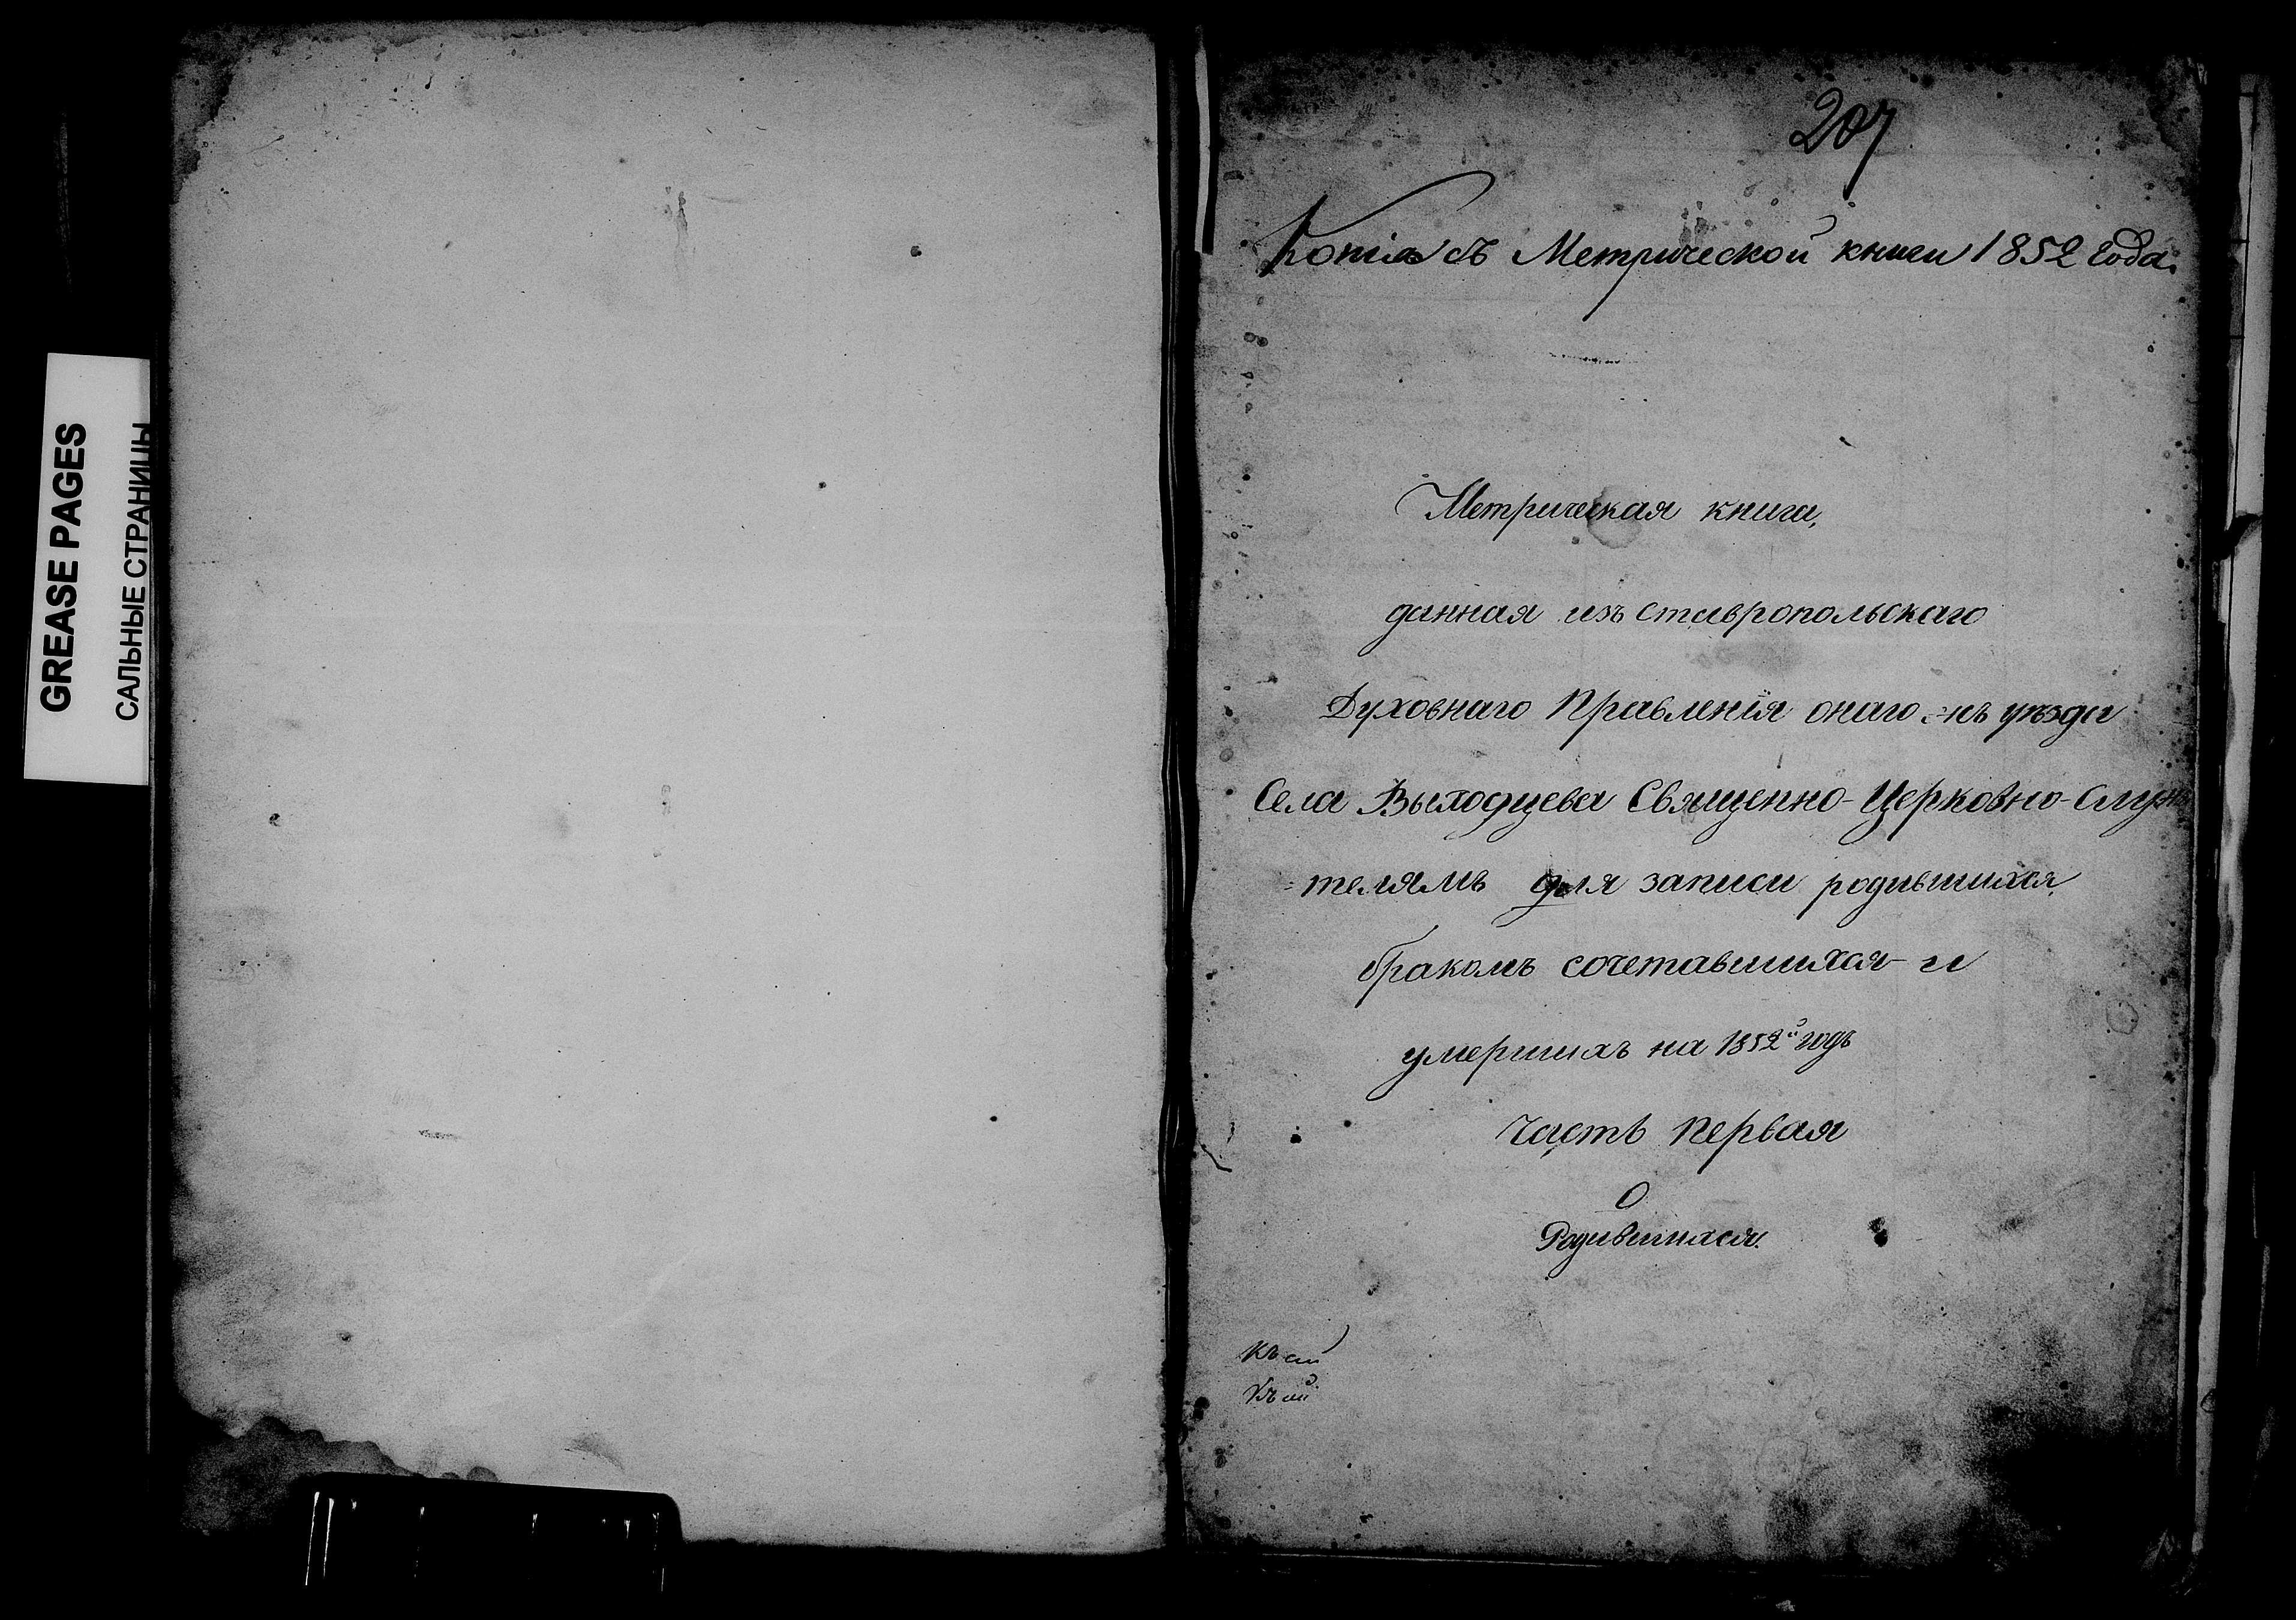 GREASE PAGES
САЛЬНЫЕ СТРАНИЦЫ
207
Копія съ Метрической книги 1852 года.
Метрическая книга,
данная изъ ставропольскаго
Духовнаго Правленія онаго уѣзда
Села Выходцева Священно-Церковно-Служи
=телямъ для записи родившихся
бракомъ сочетавшихся и
умершихъ на 1852й годъ
Часть Первая
О
Родившихся.